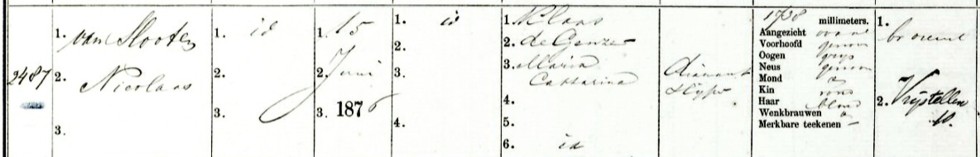 2487
1. van Slooten
2. Nicolaas
3.
1. id
2.
3.
1. 15
2. Juni
3. 1876
1. id
2.
3.
4.
1. Klaas
2. de Genze
3. Maria
Catharina
4.
5.
6. id
diamant
slyper
1708 millimeters.
Aangezicht ovaal
Voorhoofd gewoon
Oogen grys
Neus gewoon
Mond id
Kin rond
Haar blond
Wenkbrauwen id
Merkbare teekenen —
1.
2. Vrijstellen